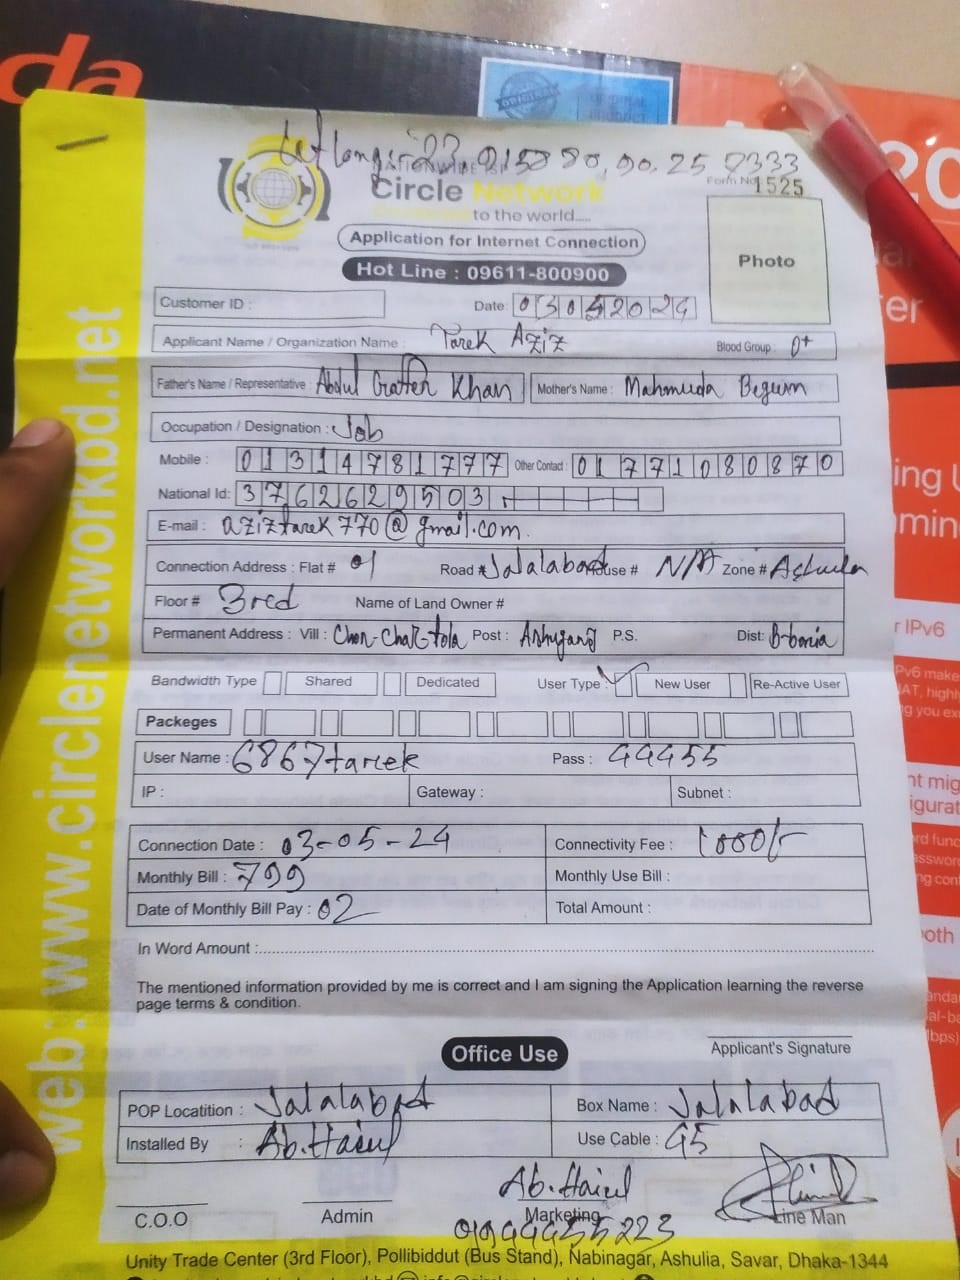 da
Lat Long: 23.91588
90.25 7333
NATIONWIDE ISP
Circle Network
to the world.....
Form No 1525
Application for Internet Connection
Hot Line : 09611-800900
Photo
Customer ID :
Date: 03052024
Applicant Name / Organization Name : Tarek Aziz
Blood Group : O+
Father's Name / Representative : Abdul Gaffer Khan
Mother's Name : Mahmuda Begum
Occupation / Designation : Job
Mobile : 01314781777
Other Contact : 01771080870
National Id: 3762629503
E-mail : aziztarek770@gmail.com.
Connection Address : Flat # 01 Road # Jalalabad House # N/A Zone # Ashulia
Floor # 3red Name of Land Owner #
Permanent Address : Vill : Chor-Char-tola Post : Ashuganj P.S. Dist: B-baria
Bandwidth Type Shared Dedicated User Type : New User Re-Active User
Packeges
User Name : 6867tarek Pass : 44455
IP : Gateway : Subnet :
Connection Date : 03-05-24 Connectivity Fee : 1000/-
Monthly Bill : 799 Monthly Use Bill :
Date of Monthly Bill Pay : 02 Total Amount :
In Word Amount :
The mentioned information provided by me is correct and I am signing the Application learning the reverse
page terms & condition.
Applicant's Signature
Office Use
POP Locatition : Jalalabad Box Name : Jalalabad
Installed By : Ab. Haiul Use Cable : 45
Ab. Haiul
C.O.O Admin Marketing Line Man
01944455223
Unity Trade Center (3rd Floor), Pollibiddut (Bus Stand), Nabinagar, Ashulia, Savar, Dhaka-1344
web: www.circlenetworkbd.net
ORIGINAL
20
IPv6